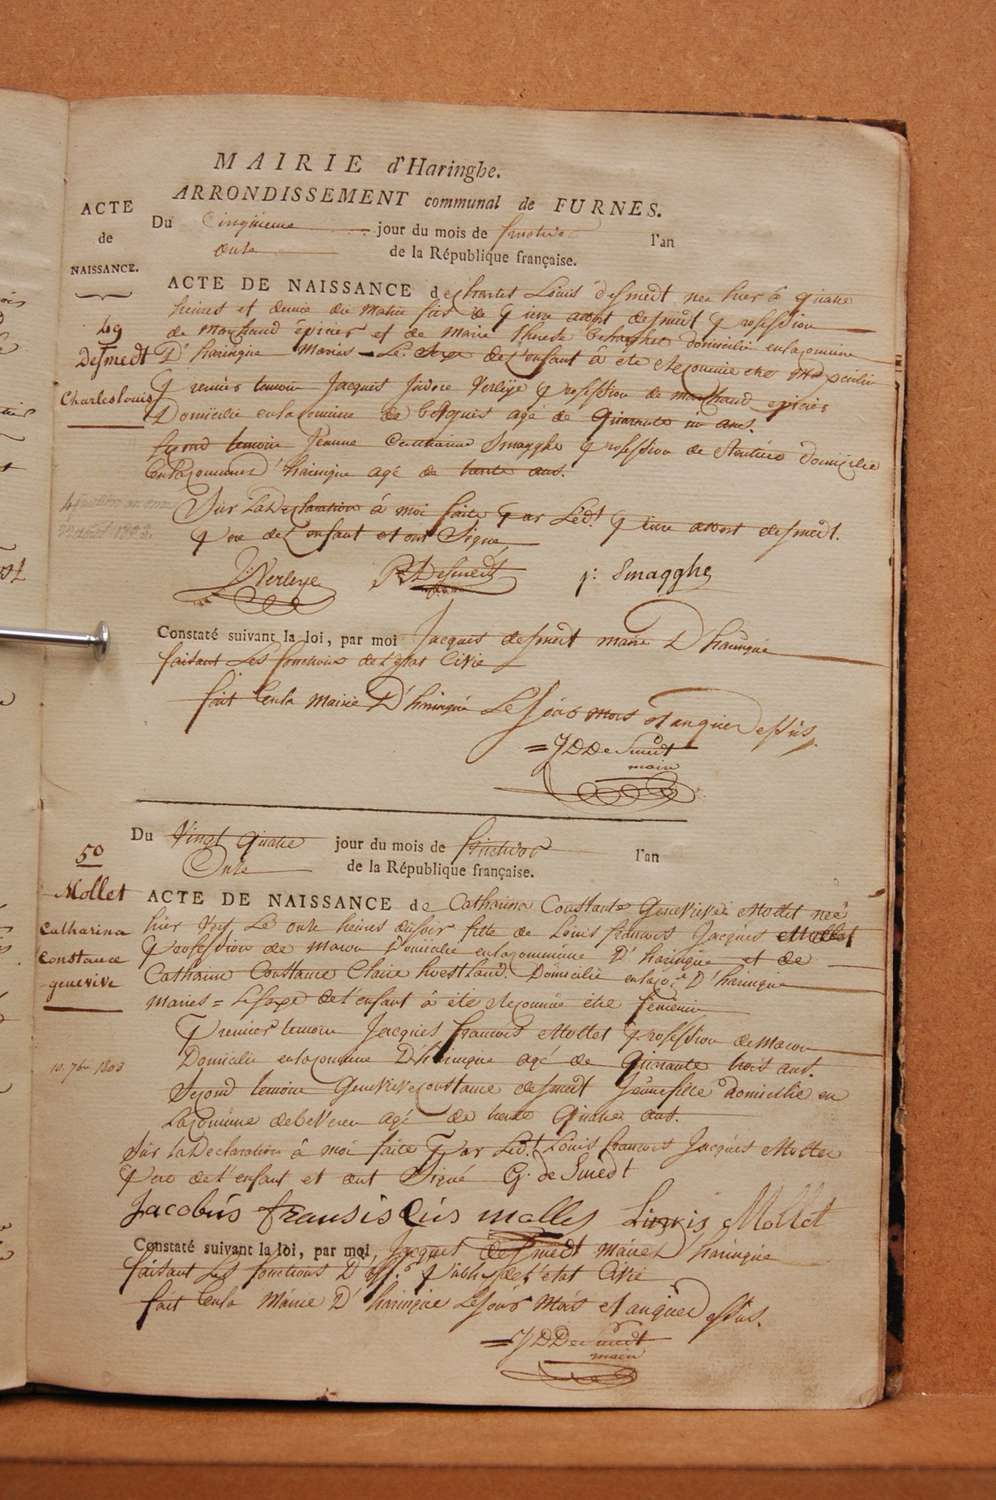 MAIRIE d'Haringhe.
ARRONDISSEMENT communal de FURNES.
ACTE
de
NAISSANCE.
Du Cinqieme jour du mois de fructidor l'an
onze de la République française.
49
Desmedt
Charles louis
ACTE DE NAISSANCE de Charles Louis desmedt nee hier à quatre
heures et demie du matin fils de pierre desmedt profession
de marchand épicier et de Marie therese domicilié en la comune
D'haringue Mariés Le Sexe de l'enfant à ete reconnue etre Masculin
premier temoin Jacques Verleÿe profession de marchand epicier
Domicilié en la comune de agé de quarante un ans.
second temoin Smagghe profession de domicilié
D'haringue agé de trente ans.
Sur La Declaration à moi faite par Led.t pierre desmedt.
pere de L'enfant et ont Signe
J: Verleye P. Desmedt Smagghe
Constaté suivant la loi, par moi Jacques desmedt maire D'haringue
faisant Les fonctions de l'etat Civil
fait en la Mairie D'haringue Le Jour mois et an que Dessus.
= J D De Smedt
maire
Du Vingt quatre jour du mois de fructidor l'an
Onze de la République française.
50
Mollet
Catharina
Constance
genevive
10 7bre 1803
ACTE DE NAISSANCE de Catharina Constante Genevieve Mollet neé
hier Vers Le onze heures du soir fille de Louis francois Jacques Mollet
profession de macon Domicilié en la comune D'haringue et de
Catharine Constance Claire Domicilié en la D'haringue
mariés = Le sexe de l'enfant à ete reconnue etre femenin
premier temoin Jacques francois Mollet profession de Macon
Domicilié en la comune D'haringue agé de quarante trois ans.
second temoin Genevieve constance desmedt Jeune fille domicilié en
La comune de beveren agé de trente quatre ans.
Sur La Declaration à moi faite par Led.t Louis francois Jacques Mollet
pere de l'enfant et ont Signé G. de Smedt
Jacobus fransis mollet Louwis Mollet
Constaté suivant la loi, par moi Jacques desmedt Maire D'haringue
faisant Les fonctions D'off.r public de l'etat Civil
fait en la Mairie D'haringue Le jour Mois et an que Dessus.
= J D De Smedt
maire